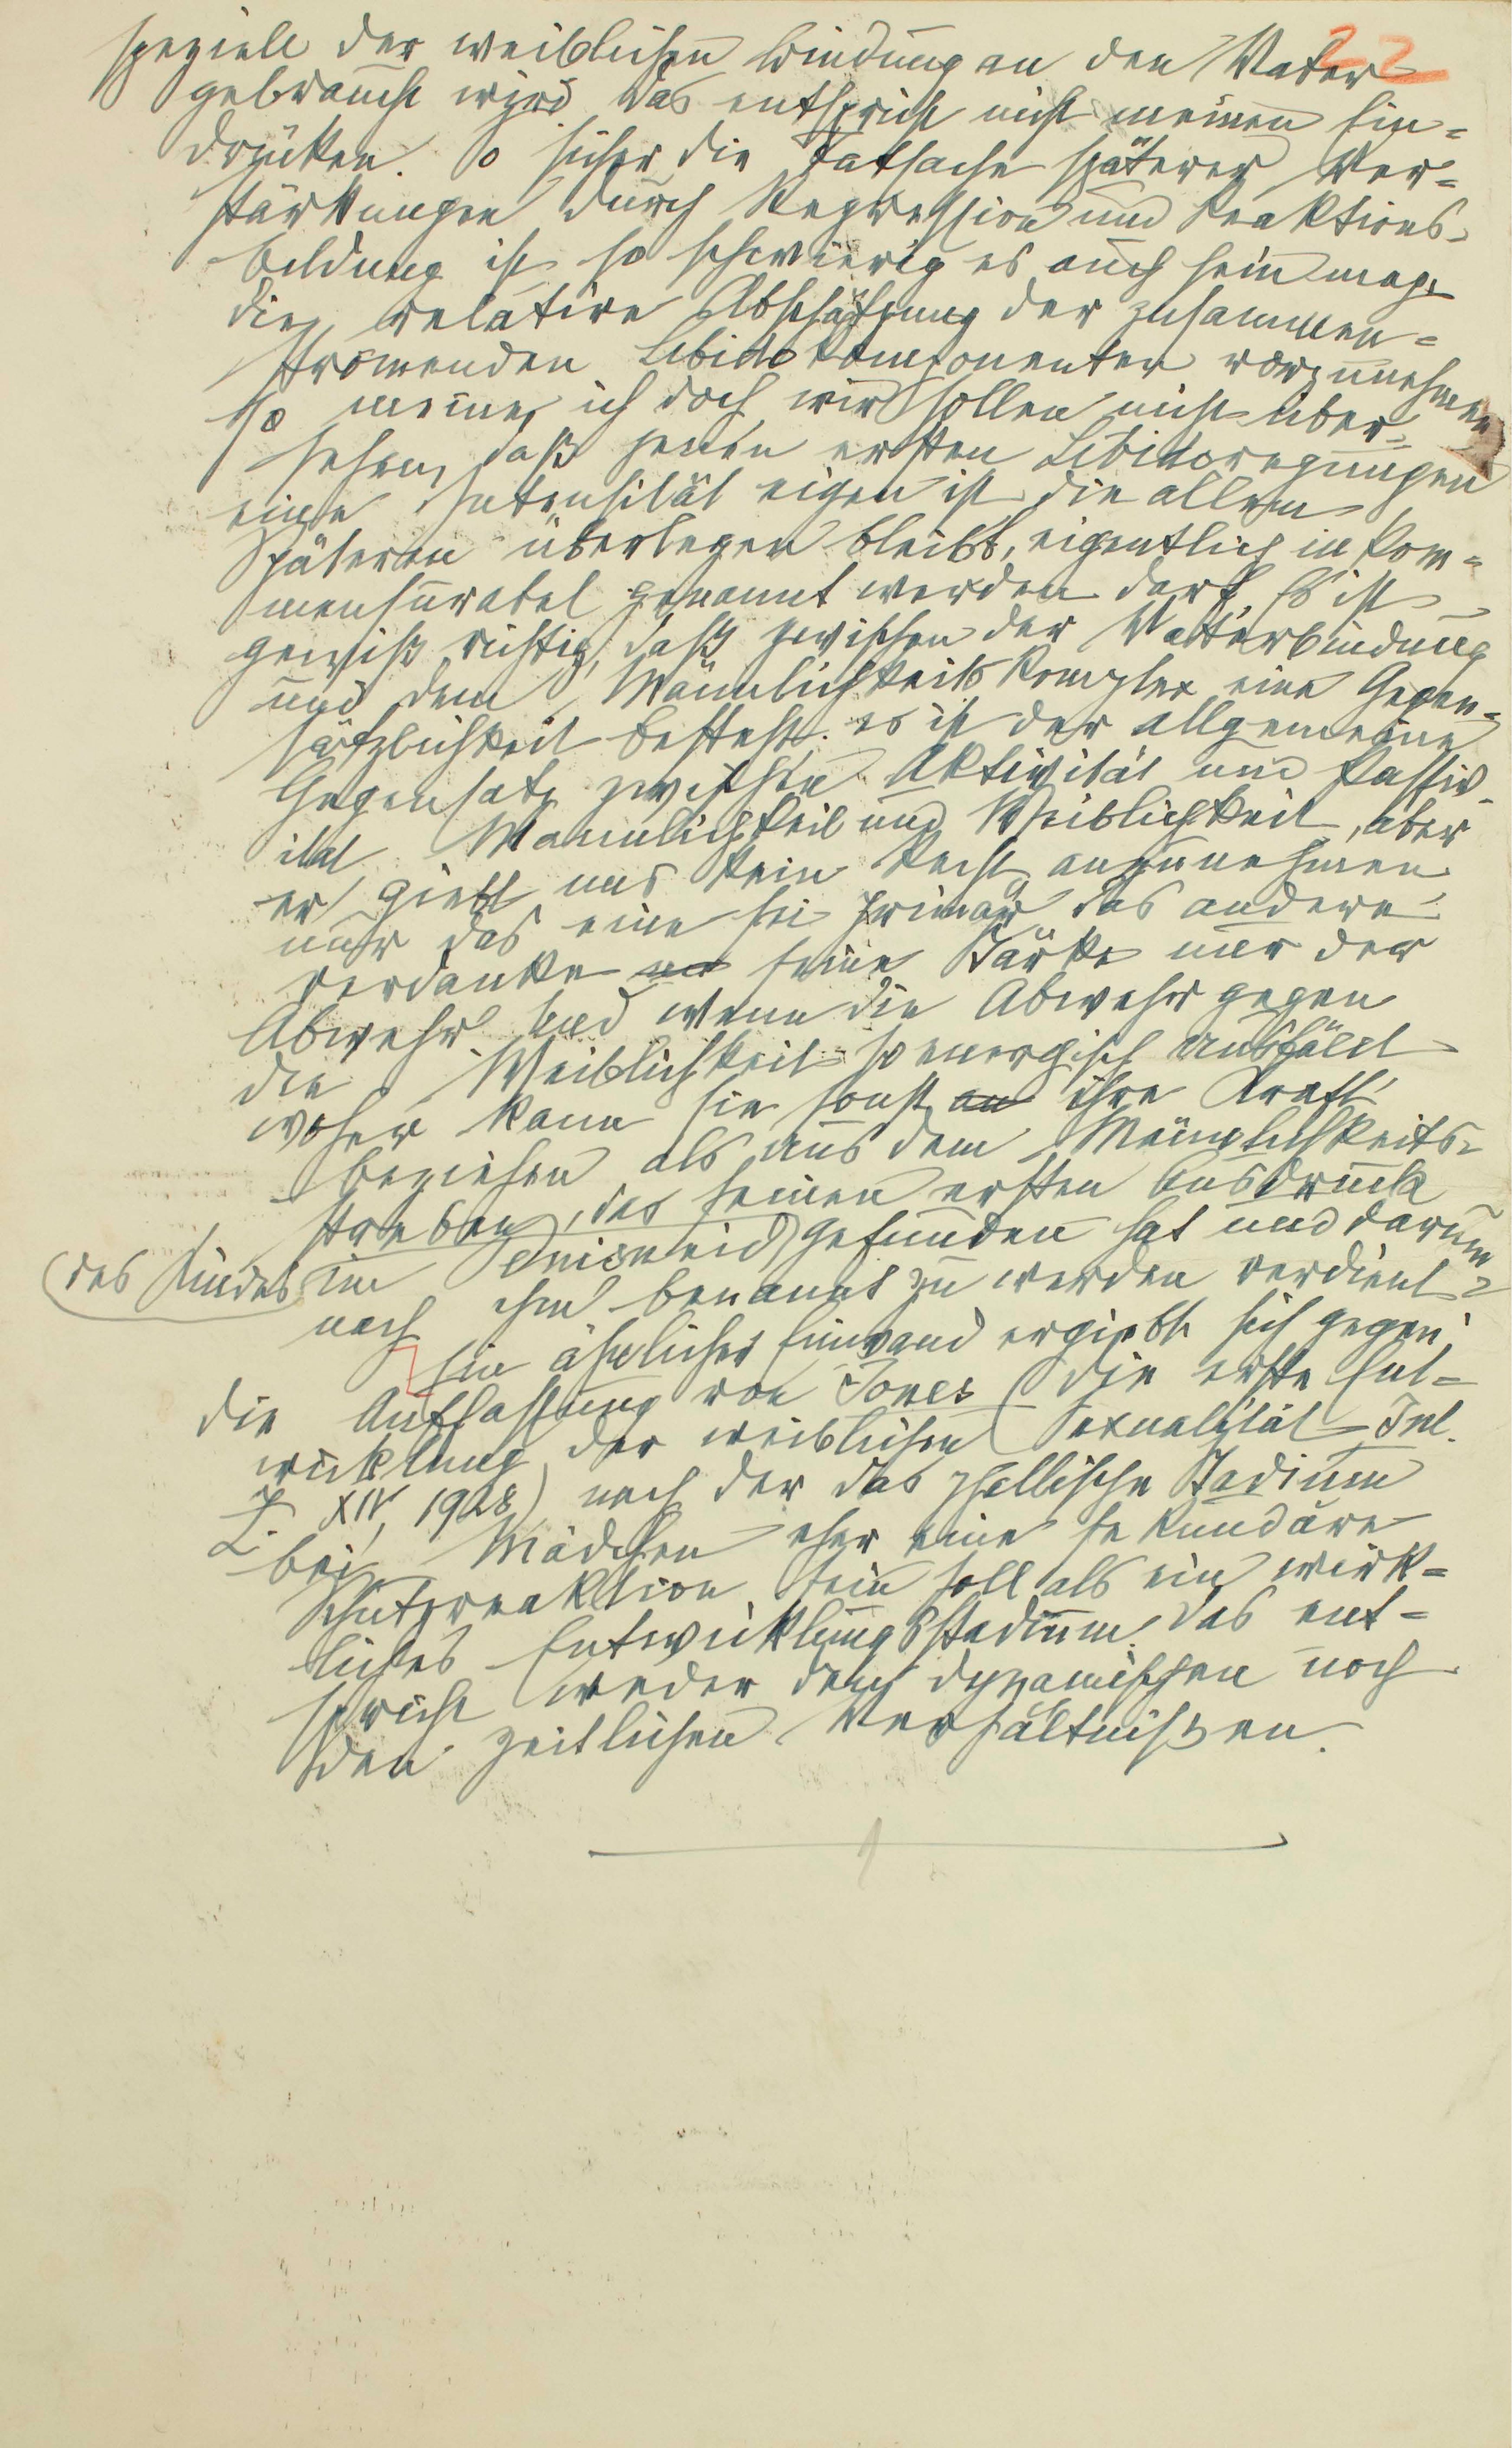 22
speziell der weiblichen Bindung an den Vater
gebraucht wird. Das entspricht nicht meinen Ein=
drücken. So sicher die Tatsache späterer Ver=
stärkungen durch Regression und Reaktions-
bildung ist, so schwierig es auch sein mag,
die relative Abschätzung der zusammen=
strömenden Libidokomponenten vorzunehmen
so meine ich doch, wir sollen nicht über=
sehen, daß jenen ersten Libidoregungen
eine Intensität eigen ist, die allen
späteren überlegen bleibt, eigentlich inkom=
mensurabel genannt werden darf. Es ist
gewiß richtig, daß zwischen der Vaterbindung
und dem Männlichkeitskomplex eine Gegen=
sätzlichkeit besteht. es ist der allgemeine
Gegensatz zwischen Aktivität und Passiv-
ität, Männlichkeit und Weiblichkeit, aber
er giebt uns kein Recht anzunehmen
nur das eine sei primär, das andere
verdanke seine Stärke nur der
Abwehr. Und wenn die Abwehr gegen
die Weiblichkeit so energisch ausfällt
woher kann sie sonst ihre Kraft
beziehen als aus dem Männlichkeits-
streben, das seinen ersten Ausdruck
des Kindes im Penisneid gefunden hat und darum
nach ihm benannt zu werden verdient?
Ein ähnlicher Einwand ergiebt sich gegen
die Auffassung von Jones (Die erste Ent=
wicklung der weiblichen Sexualität Int.
Z. XIV, 1928) nach der das phallische Stadium
bei Mädchen eher eine sekundäre
Schutzreaktion sein soll als ein wirk=
liches Entwicklungsstadium. Das ent=
spricht weder den dynamischen noch
den zeitlichen Verhältnißen.